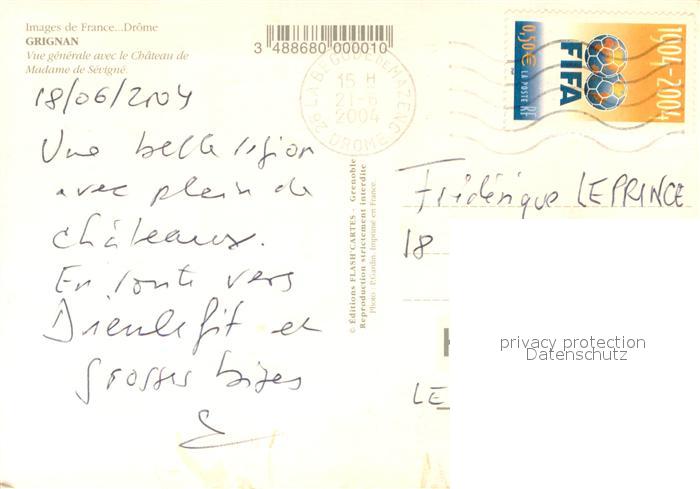 Images de France...Drôme
GRIGNAN
Vue générale avec le Château de
Madame de Sévigné.
3 488680 000010
18/06/2004
Une belle région
avec plein de
châteaux.
En route vers
Dieulefit et
grosses bises
26 LA BEGUDE DE MAZENC
15 H
21-6
2004
DROME
© Éditions FLASH'CARTES - Grenoble
Reproduction strictement interdite
Photo : P.Gardin. Imprimé en France.
1904-2004
FIFA
0,50€ LA POSTE RF
Frédérique LEPRINCE
18
LE
privacy protection
Datenschutz